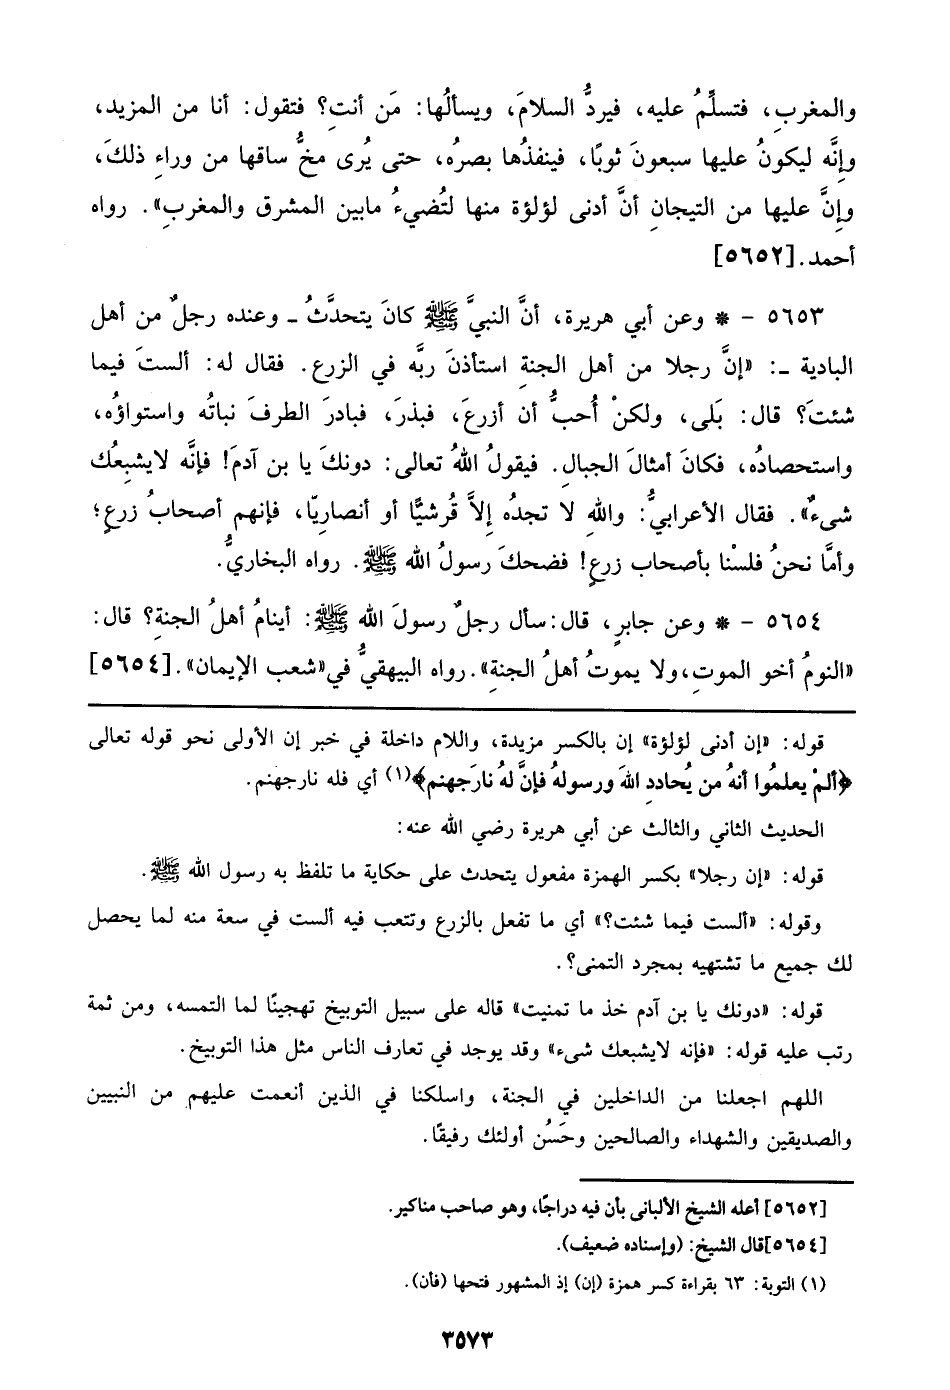 والمغربِ، فتسلِّمُ عليه، فيردُّ السلامَ، ويسألُها: مَن أنتِ؟ فتقول: أنا من المزيد،
وإنَّه ليكونُ عليها سبعونَ ثوبًا، فينفذُها بصرُه، حتى يُرى مخُّ ساقها من وراءِ ذلكَ،
وإنَّ عليها من التيجانِ أنَّ أدنى لؤلؤة منها لتُضيءُ مابين المشرق والمغربِ». رواه
أحمد.[٥٦٥٢]
٥٦٥٣ – * وعن أبي هريرة، أنَّ النبيَّ ﷺ كانَ يتحدَّثُ ـ وعنده رجلٌ من أهل
البادية ـ: «إنَّ رجلا من أهل الجنةِ استأذنَ ربَّه في الزرع. فقال له: ألستَ فيما
شئتَ؟ قال: بَلى، ولكنْ أُحبُّ أن أزرعَ، فبذرَ، فبادرَ الطرفَ نباتُه واستواؤُه،
واستحصادُه، فكانَ أمثالَ الجبالِ. فيقولُ اللهُ تعالى: دونكَ يا بن آدمَ! فإنَّه لايشبِعُك
شىءٌ». فقال الأعرابيُّ: واللهِ لا تجدُه إلاَّ قُرشيًّا أو أنصاريّا، فإنهم أصحابُ زرعٍ؛
وأمَّا نحنُ فلسْنا بأصحاب زرعٍ! فضحكَ رسولُ الله ﷺ. رواه البخاريُّ.
٥٦٥٤ – * وعن جابرٍ، قال:سأل رجلٌ رسولَ الله ﷺ: أينامُ أهلُ الجنةِ؟ قال:
«النومُ أخو الموتِ،ولا يموتُ أهلُ الجنةِ».رواه البيهقيُّ في«شعب الإيمان».[٥٦٥٤]
قوله: «إن أدنى لؤلؤة» إن بالكسر مزيدة، واللام داخلة في خبر إن الأولى نحو قوله تعالى
﴿ألمْ يعلمُوا أنهُ من يُحاددِ اللهَ ورسولهُ فإنَّ لهُ نارَجهنم﴾(١) أي فله نارجهنم.
الحديث الثاني والثالث عن أبي هريرة رضي الله عنه:
قوله: «إن رجلا» بكسر الهمزة مفعول يتحدث على حكاية ما تلفظ به رسول الله ﷺ.
وقوله: «ألست فيما شئت؟» أي ما تفعل بالزرع وتتعب فيه ألست في سعة منه لما يحصل
لك جميع ما تشتهيه بمجرد التمنى؟.
قوله: «دونك يا بن آدم خذ ما تمنيت» قاله على سبيل التوبيخ تهجينًا لما التمسه، ومن ثمة
رتب عليه قوله: «فإنه لايشبعك شىء» وقد يوجد في تعارف الناس مثل هذا التوبيخ.
اللهم اجعلنا من الداخلين في الجنة، واسلكنا في الذين أنعمت عليهم من النبيين
والصديقين والشهداء والصالحين وحَسُن أولئك رفيقًا.
[٥٦٥٢] أعله الشيخ الألبانى بأن فيه دراجًا، وهو صاحب مناكير.
[٥٦٥٤]قال الشيخ: (وإسناده ضعيف).
(١) التوبة: ٦٣ بقراءة كسر همزة (إن) إذ المشهور فتحها (فأن).
٣٥٧٣